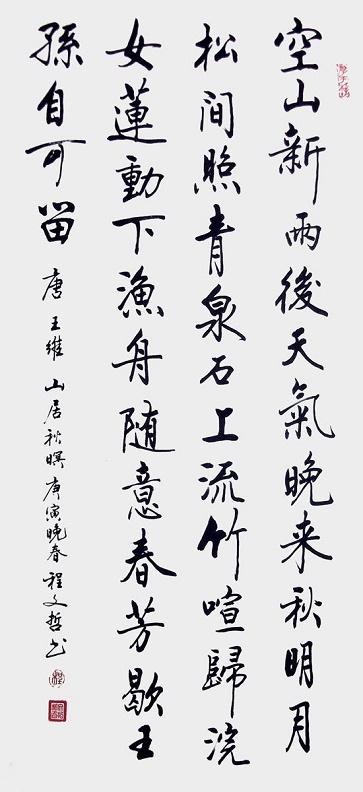 空山新雨後天氣晚来秋明月
松间照青泉石上流竹喧歸浣
女蓮動下漁舟随意春芳歇王
孫自可留 唐 王維 山居秋暝 庚寅晚春 程文哲书